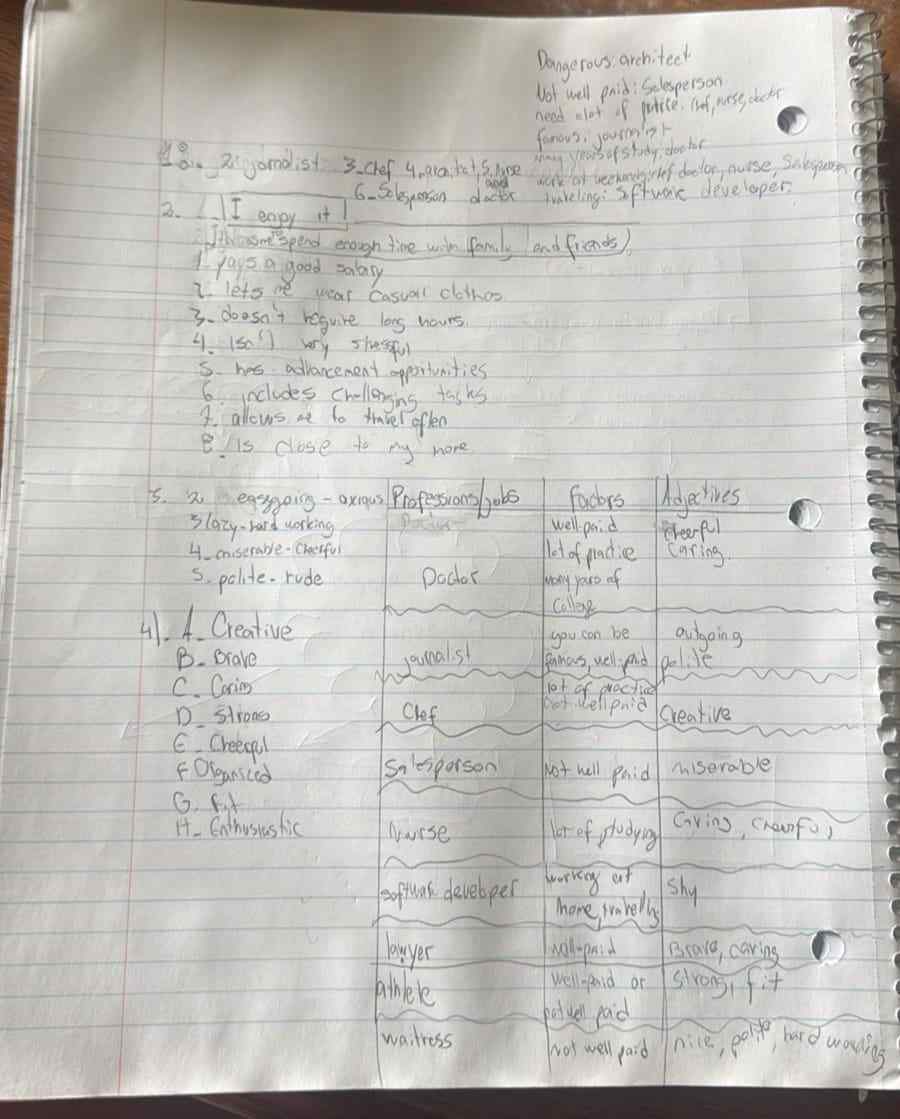 Dangerous: architect
Not well paid: Salesperson
need a lot of pratice: chef, nurse, doctor
famous: journalist
many years of study, doctor
work at weekends, chef doctor, nurse, Salesperson
traveling: software developer
2. jornalist 3_ Clef 4_ architect, 5_ nurse and doctor
6_ Salesperson
2. I enjoy it
spend enough time with family (and friends)
1_ pays a good salary
2_ lets me wear casual clothos
3_ doesn't require long hours
4_ isn't very stressful
5_ has advancement opportunities
6_ includes challenging tasks
7_ allows me to travel often
8_ is close to my home
3. 2. easygoing - axious
3 lazy - hard working
4_ miserable - Cheerful
5_ polite - rude
4). A_ Creative
B_ Brave
C_ Caring
D_ Strong
E_ Cheerful
F Organised
G. Fit
H_ Enthusiastic
Professions/jobs Factors Adjectives
Doctor
well-paid
lot of practice
many years of
college
Cheerful
Caring.
journalist
you can be
famous, well-paid
outgoing
polite
Clef
lot of practice
not well paid
Creative
Salesperson Not well paid miserable
Nurse lot of studying Caring, cheerful
software developer
working at
home, travelling
Shy
lawyer well-paid Brave, caring
athlete
well-paid or
not well paid
Strong, fit
waitress Not well paid nice, polite, hard working